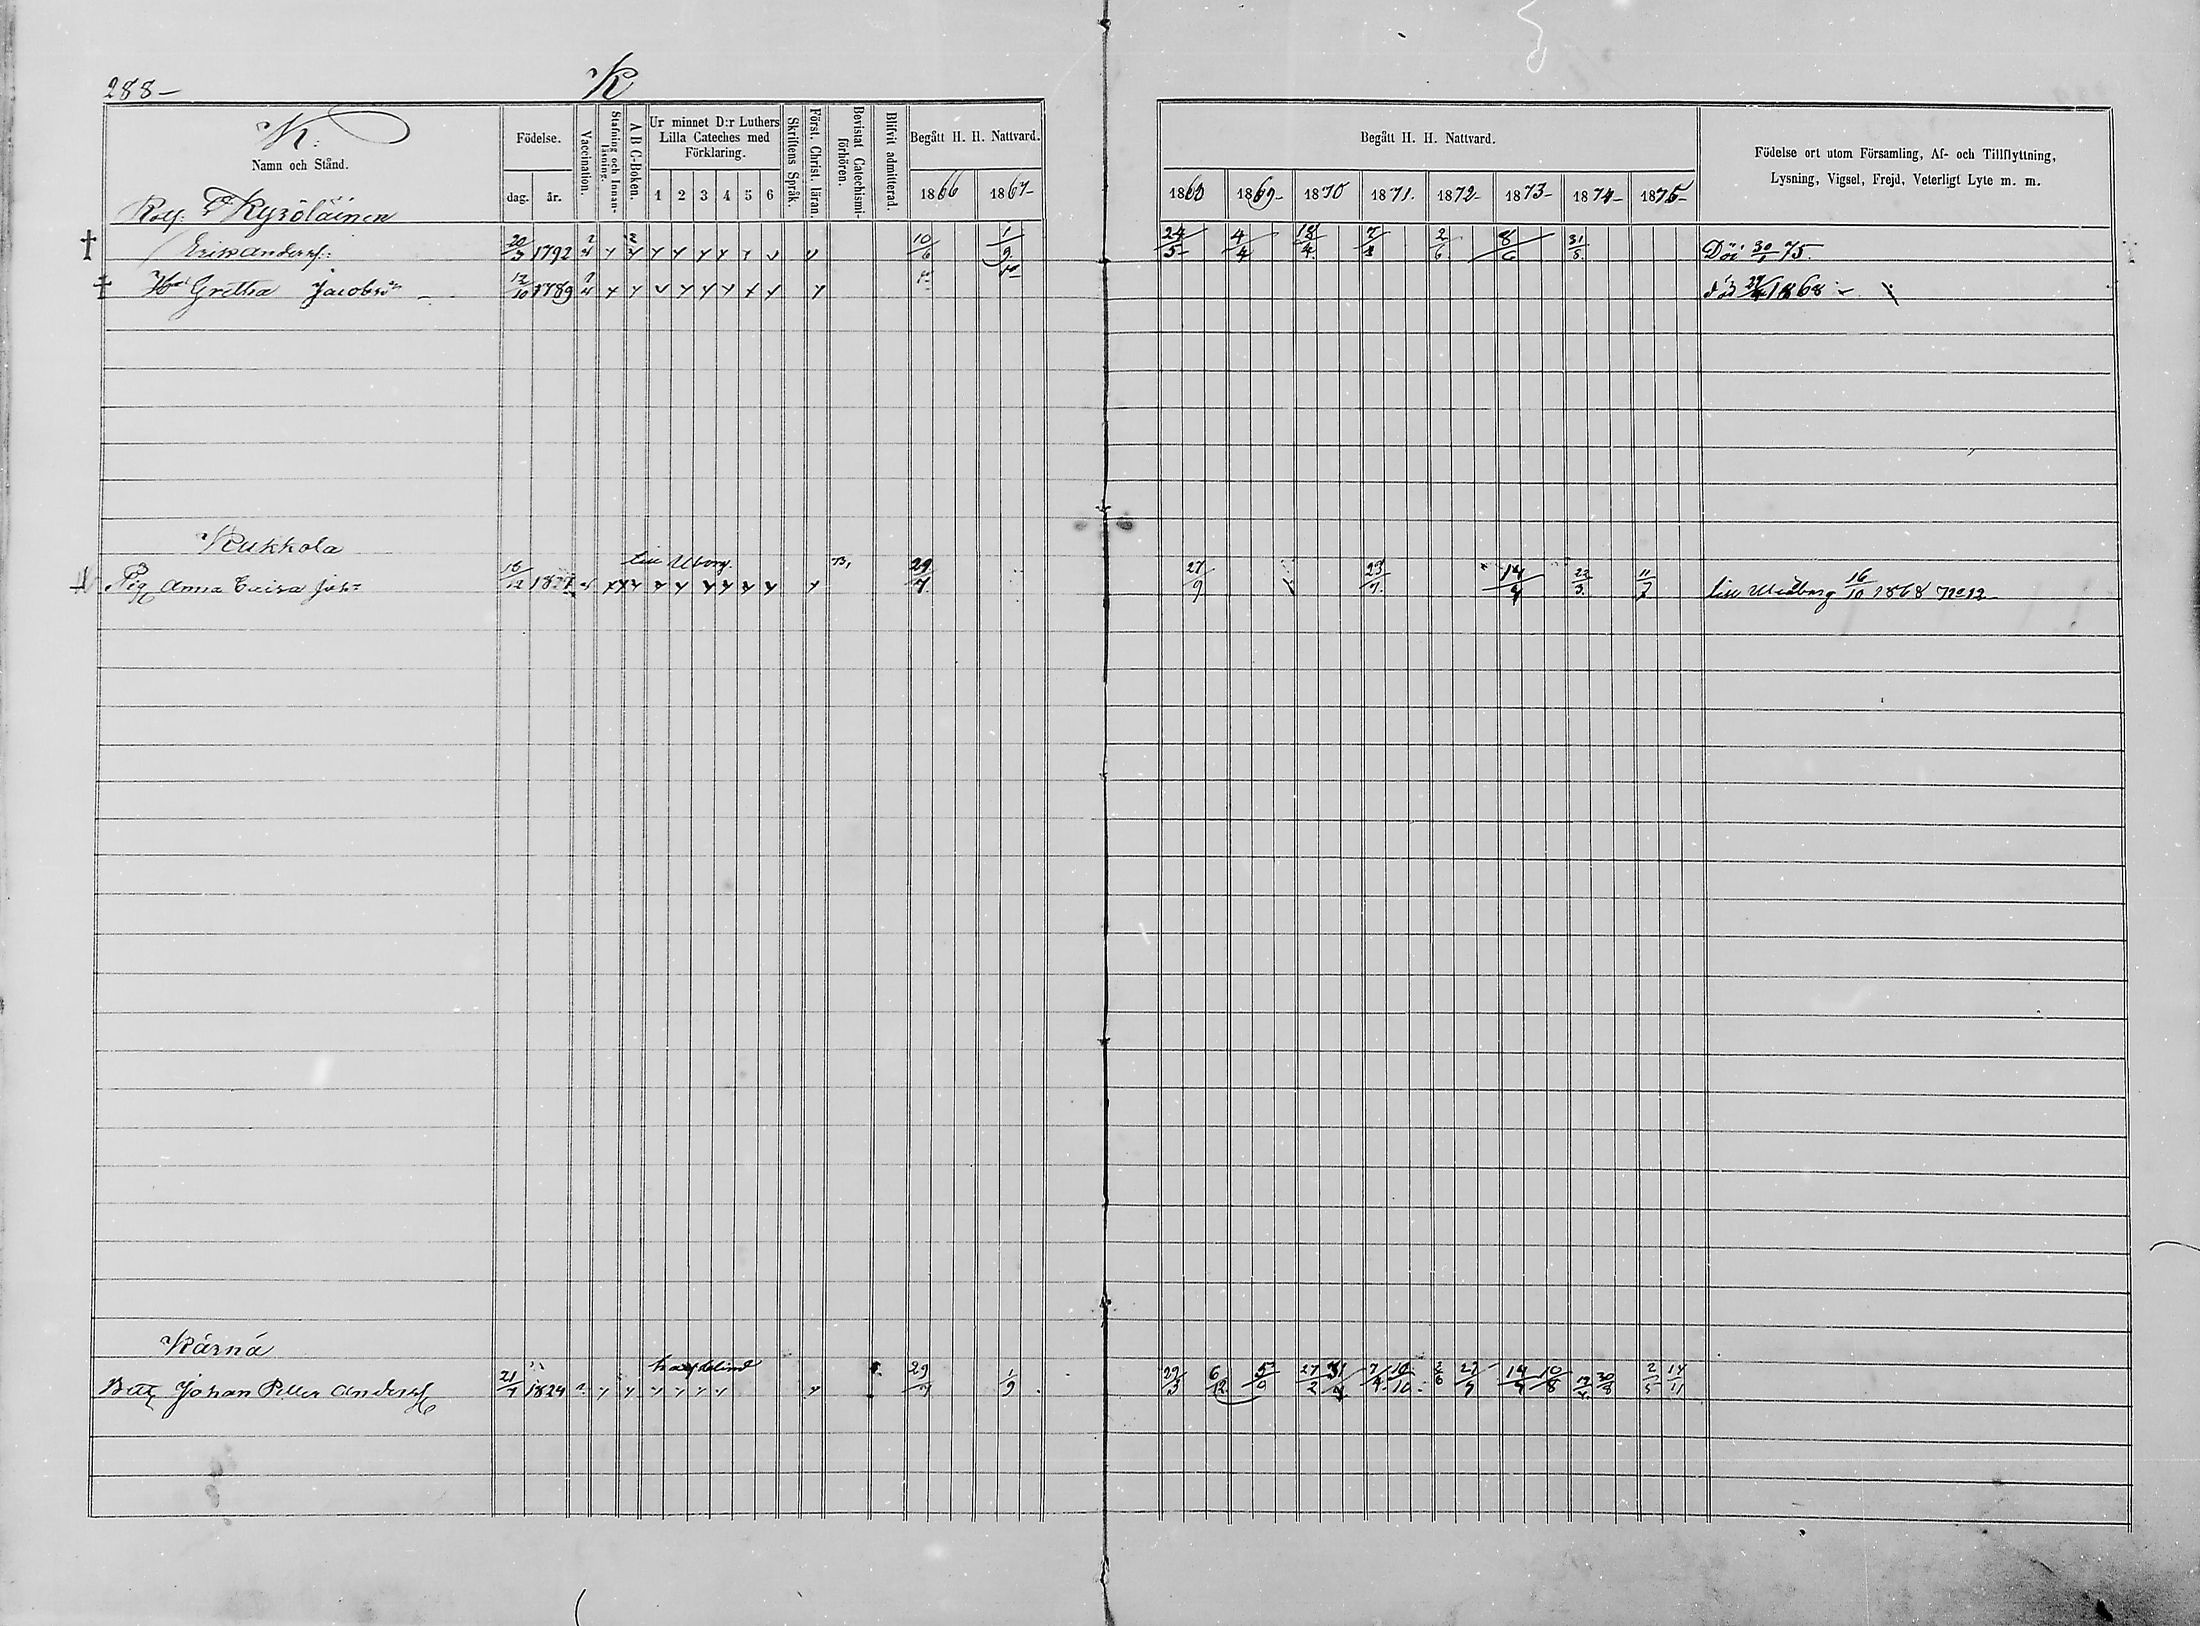 288 –
K
K:
Namn och Stånd.
Födelse.
dag. år.
Vaccination.
Stafning och Innanläsning.
A B C-Boken.
Ur minnet D:r Luthers Lilla Cateches med Förklaring.
1 2 3 4 5 6
Skriftens Språk.
Först. Christ. läran.
Bevistat Catechismi-förhören.
Blifvit admitterad.
Begått H. H. Nattvard.
1866 1867-
Begått H. H. Nattvard.
1868 1869- 1870 1871. 1872- 1873- 1874- 1875-
Födelse ort utom Församling, Af- och Tillflyttning,
Lysning, Vigsel, Frejd, Veterligt Lyte m. m.
Kyröläinen
Eric Anderss: 20/3 1792 10/6 1/9 24/5 4/4 18/4 7/2 2/6 8/6 31/5 Död 30/1 75.
Gretha Jacobsdr 12/10 1789 död 1868
Kukkola
till Uborg.
Pig Anna Caisa Joh: 18/12 29/7 27/9 23/7 14/9 22/3 11/7 till Uleåborg 16/10 1868 No 12
Kärnä
half blind
Johan Petter Anderss 21/7 1824 29/7 1/9 29/3 6/12 27/2 7/4 10/10 2/6 22/9 14/9 10/8 30/8 2/5 14/11